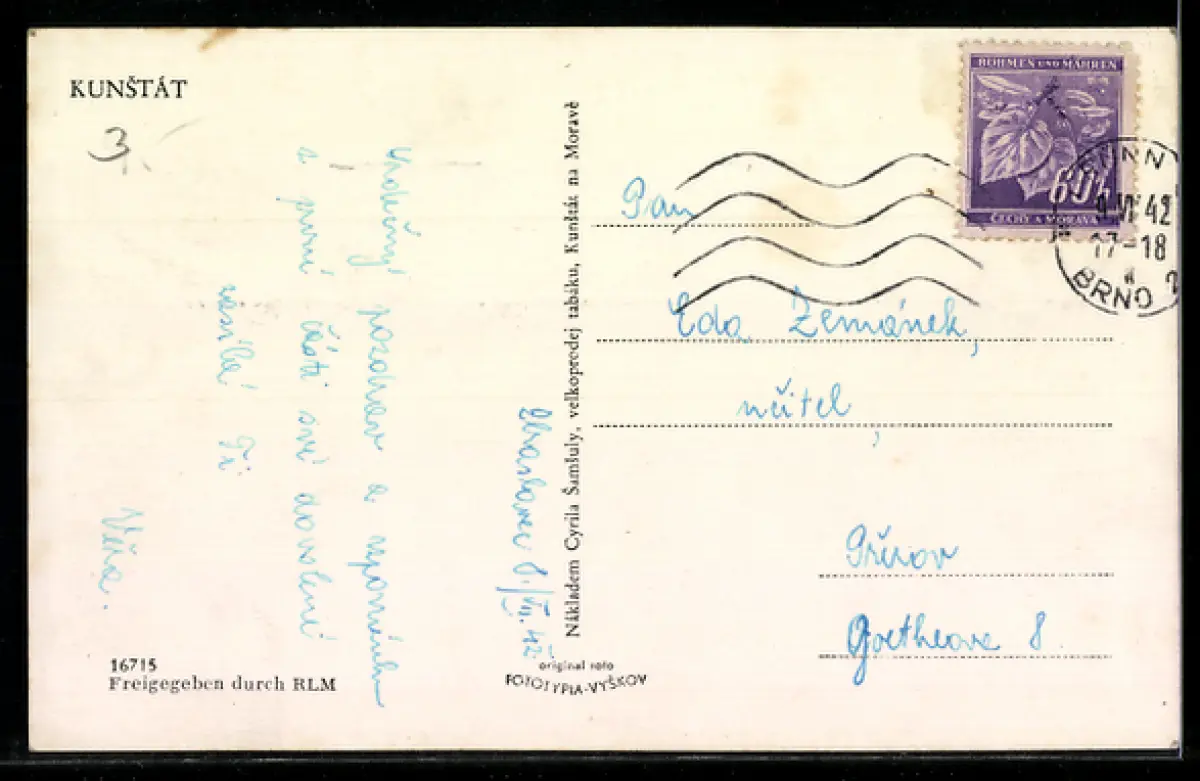 KUNŠTÁT
3
Srdečný pozdrav a vzpomínku
z první části své dovolené
zasílá Ti
Věra.
8./VII. 42
Nákladem Cyrila Šamšuly, velkoprodej tabáku, Kunštát na Moravě
16715
Freigegeben durch RLM
original foto
FOTOTYPIA-VYŠKOV
BÖHMEN UND MÄHREN
60h
ČECHY A MORAVA
BRÜNN
VII 42
17-18
BRNO 2
Pan
Eda Zemánek,
učitel,
Přerov
Goetheova 8.